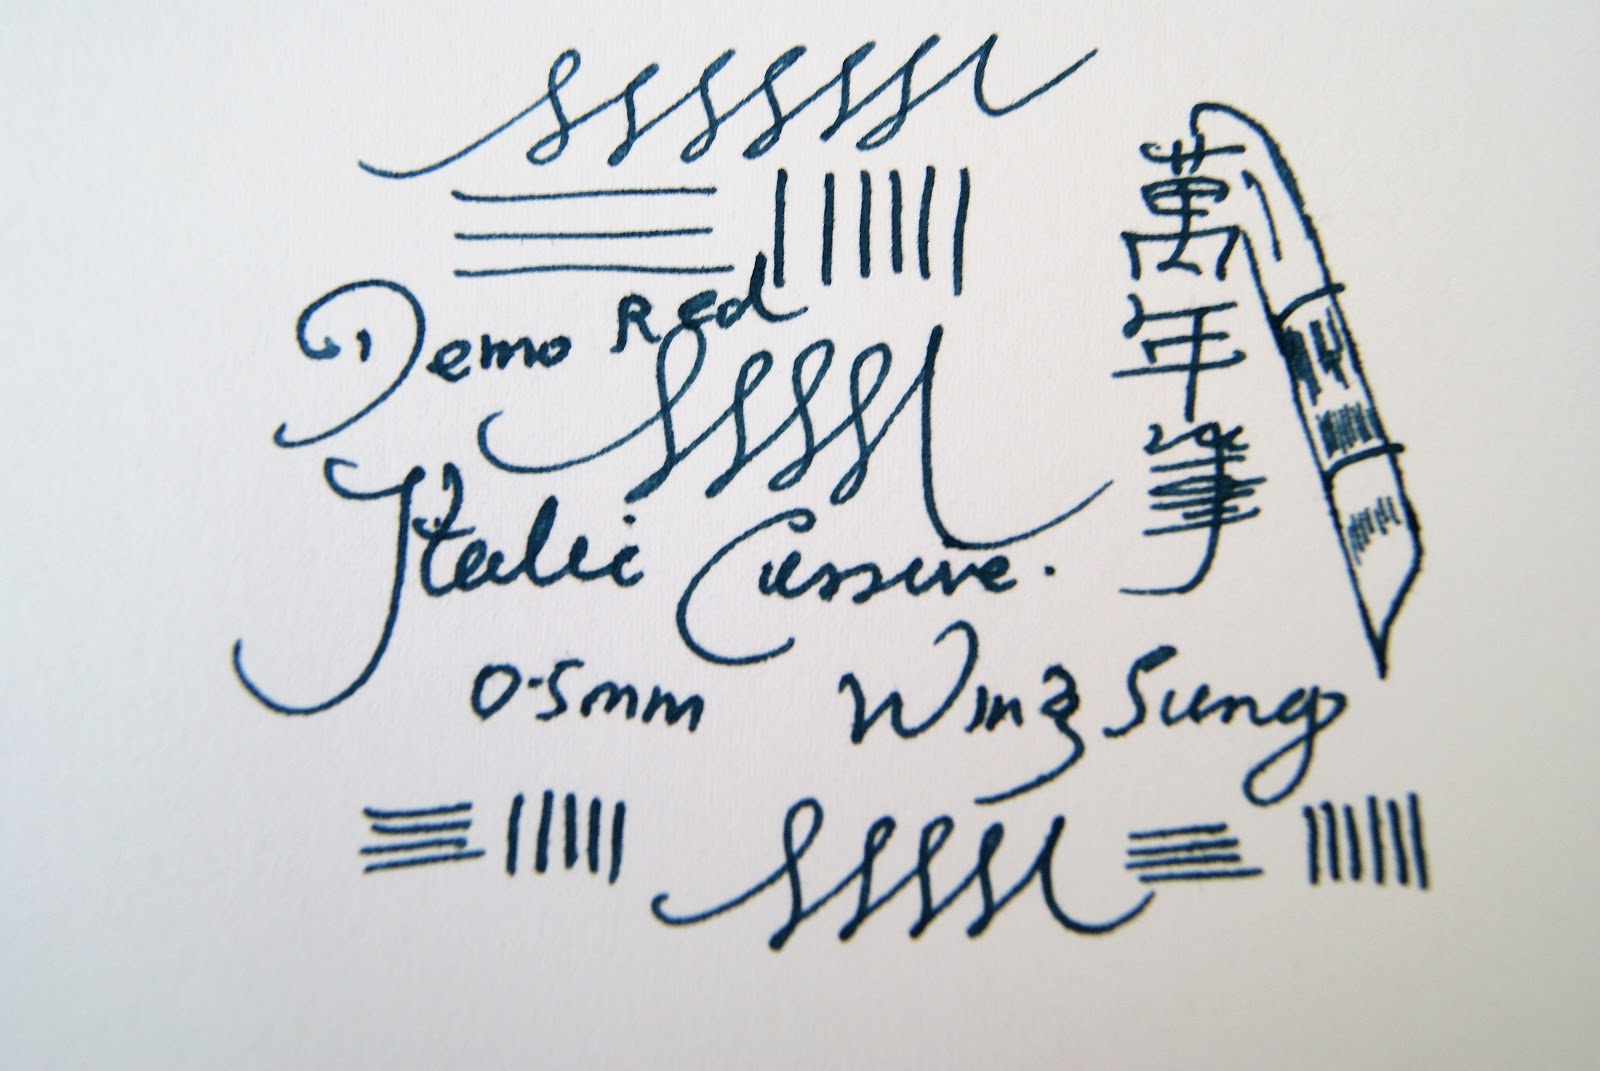 Demo Red
Italic Cursive.
0.5mm Wing Sung
萬年筆